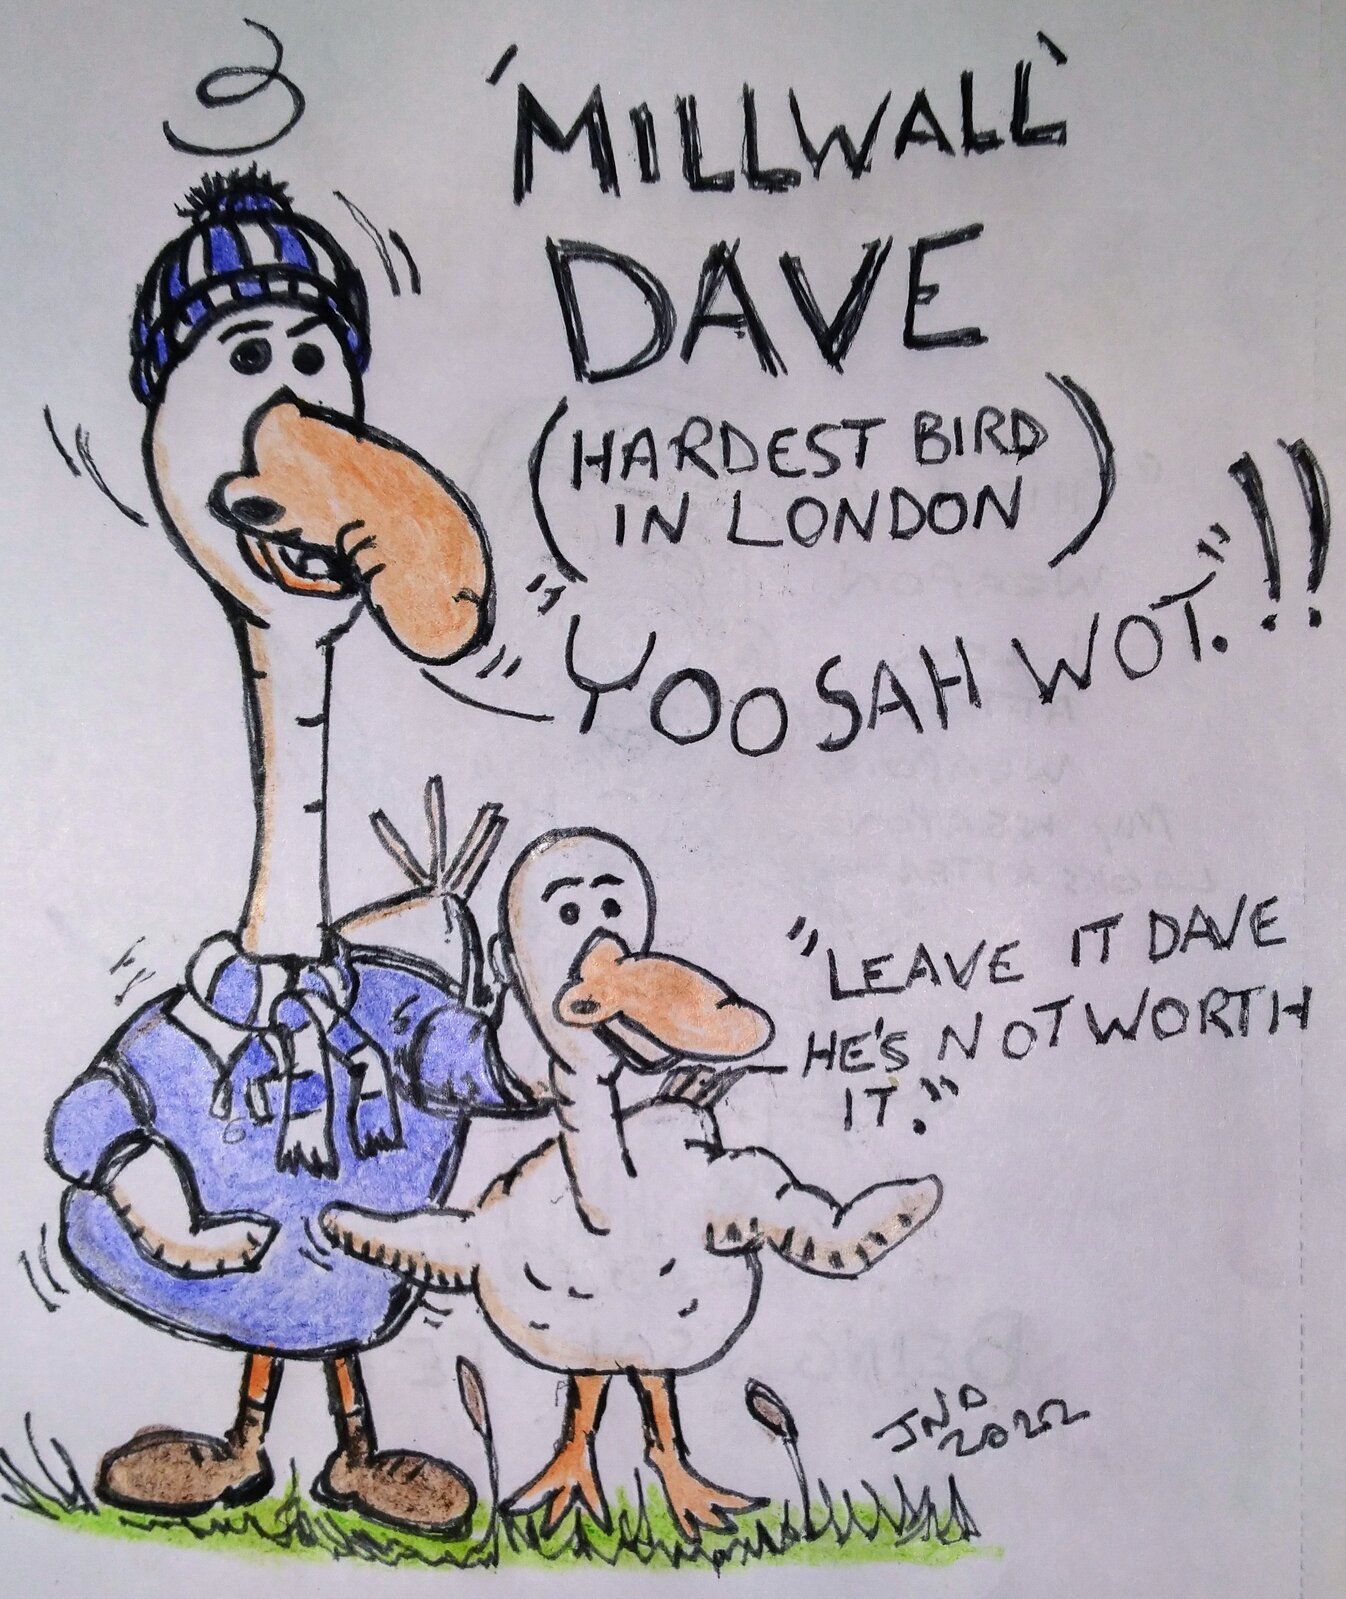 'MILLWALL'
DAVE
(HARDEST BIRD
IN LONDON)
"YOO SAH WOT."!!
"LEAVE IT DAVE
HE'S NOT WORTH
IT."
JND
2022